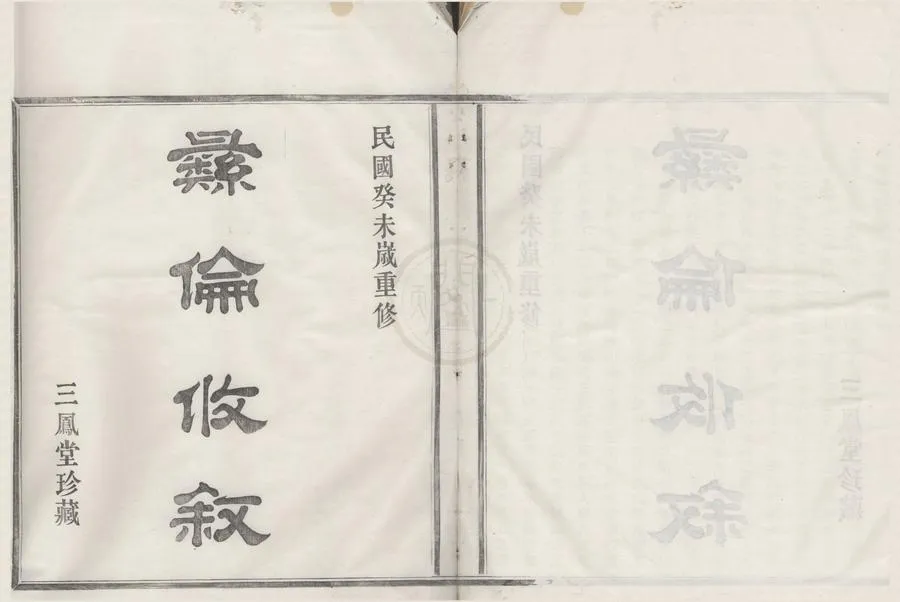 民國癸未歲重修
彝倫攸敘
三鳳堂珍藏